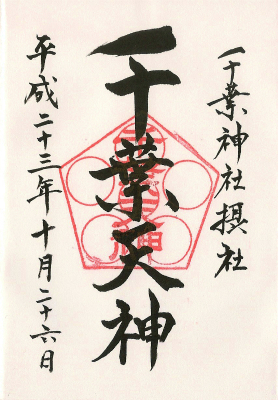 千葉神社摂社
千葉天神
平成二十三年十月二十六日